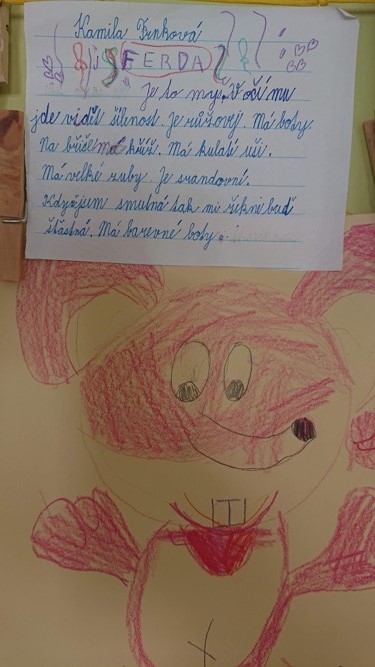 Kamila Trnková
FERDA
Je to myš. V očí mu
jde vidět šílenost. Je růžovej. Má boty.
Na břiše má kříž. Má kulatí uši.
Má velké zuby. Je srandovní.
Když jsem smutná tak mi řekne buď
šťastná. Má barevné boty.